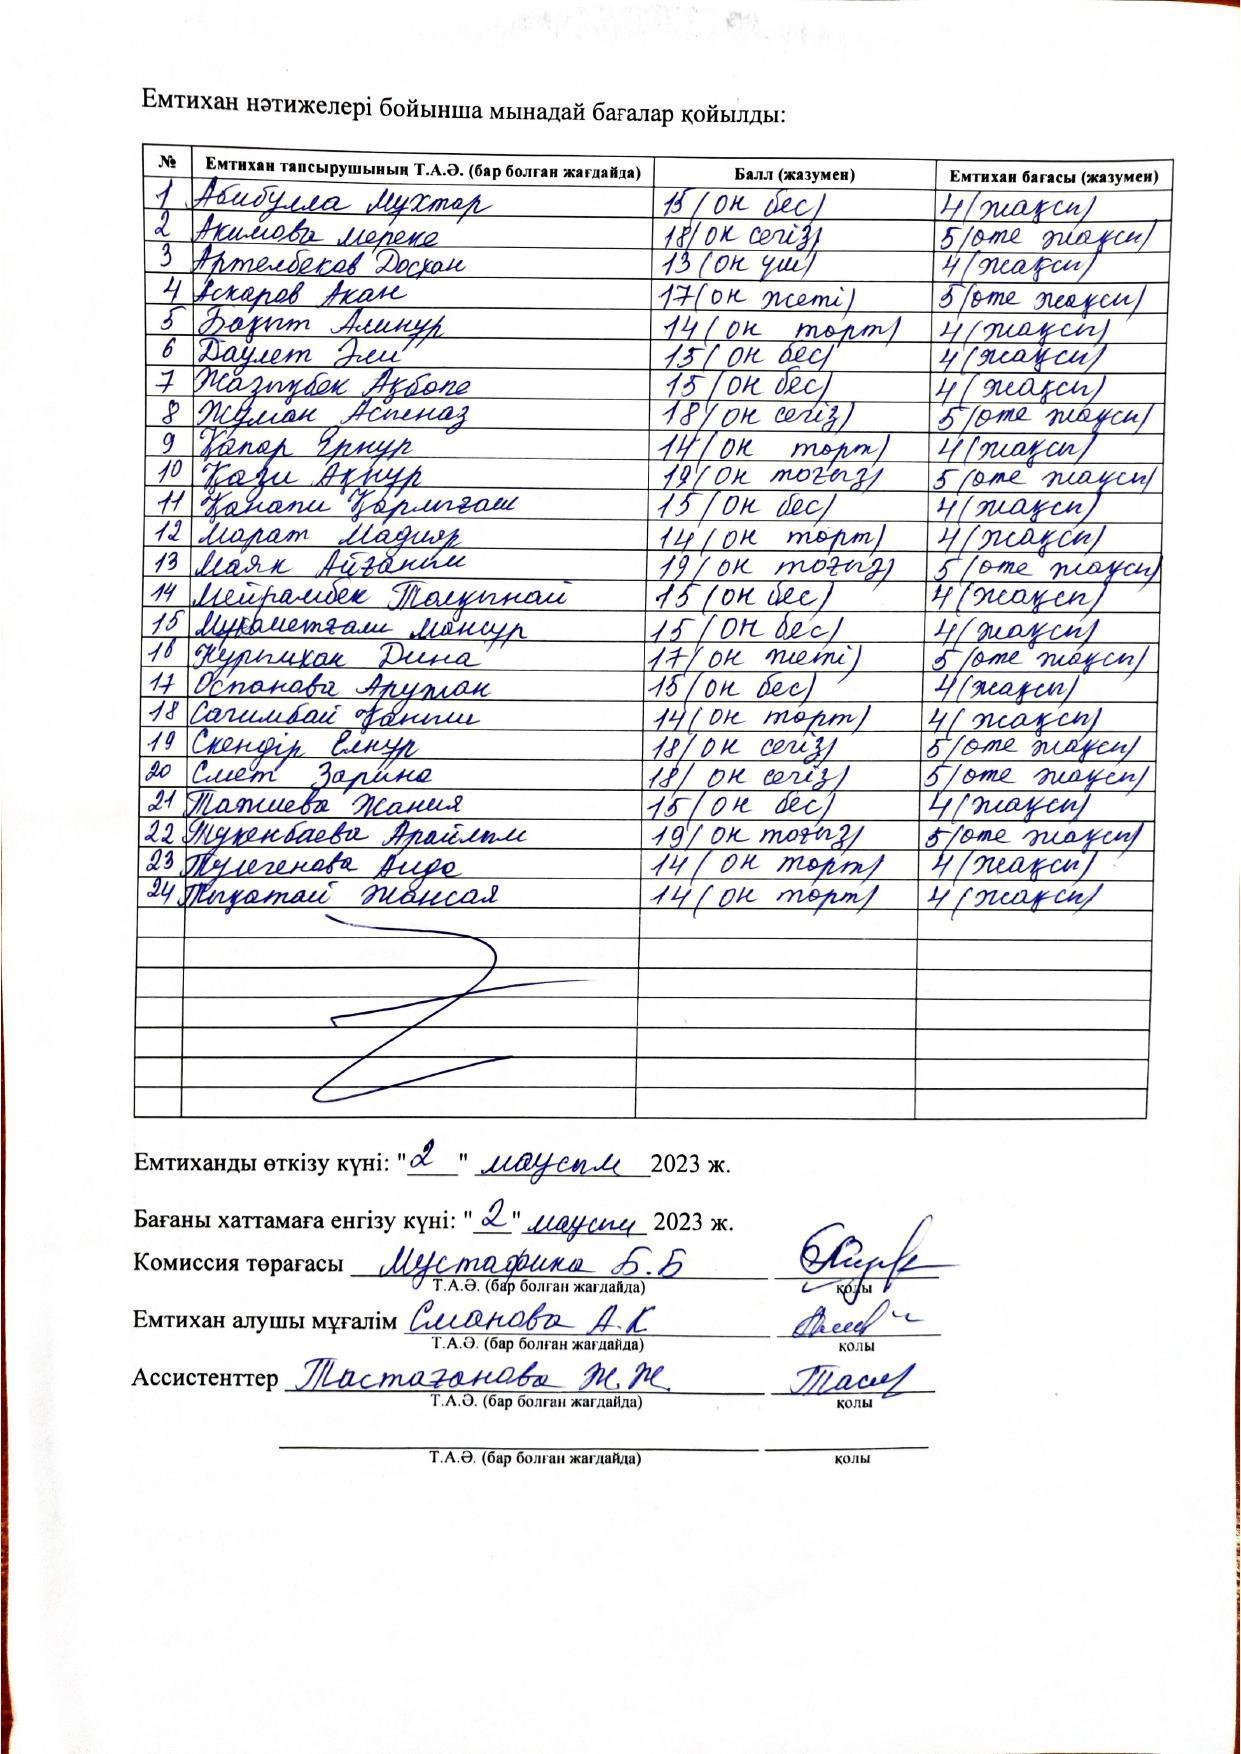 Емтихан нәтижелері бойынша мынадай бағалар қойылды:
№ Емтихан тапсырушының Т.А.Ә. (бар болған жағдайда) Балл (жазумен) Емтихан бағасы (жазумен)
1 Абибулла Мухтар 15 (он бес) 4 (жақсы)
2 Акимова Мереке 18 (он сегіз) 5 (өте жақсы)
3 Артелбеков Досхан 13 (он үш) 4 (жақсы)
4 Аскаров Акан 17 (он жеті) 5 (өте жақсы)
5 Бақыт Алинур 14 (он төрт) 4 (жақсы)
6 Даулет Әли 15 (он бес) 4 (жақсы)
7 Жазықбек Ақбопе 15 (он бес) 4 (жақсы)
8 Жуман Аспеназ 18 (он сегіз) 5 (өте жақсы)
9 Қапар Ернур 14 (он төрт) 4 (жақсы)
10 Қази Ақнур 19 (он тоғыз) 5 (өте жақсы)
11 Қанапи Қарлығаш 15 (он бес) 4 (жақсы)
12 Марат Мадияр 14 (он төрт) 4 (жақсы)
13 Маян Айғаным 19 (он тоғыз) 5 (өте жақсы)
14 Мейрамбек Толқынай 15 (он бес) 4 (жақсы)
15 Мухаметғали Мансур 15 (он бес) 4 (жақсы)
16 Нурпихан Дина 17 (он жеті) 5 (өте жақсы)
17 Оспанова Аружан 15 (он бес) 4 (жақсы)
18 Сагимбай Қаныш 14 (он төрт) 4 (жақсы)
19 Скендір Елнұр 18 (он сегіз) 5 (өте жақсы)
20 Смет Зарина 18 (он сегіз) 5 (өте жақсы)
21 Тажиева Жания 15 (он бес) 4 (жақсы)
22 Тукенбаева Арайлым 19 (он тоғыз) 5 (өте жақсы)
23 Тулегенова Аида 14 (он төрт) 4 (жақсы)
24 Тықатай Жансая 14 (он төрт) 4 (жақсы)
Емтиханды өткізу күні: "2" маусым 2023 ж.
Бағаны хаттамаға енгізу күні: "2" маусым 2023 ж.
Комиссия төрағасы Мустафина Б.Б
Т.А.Ә. (бар болған жағдайда) қолы
Емтихан алушы мұғалім Сманова А.К
Т.А.Ә. (бар болған жағдайда) қолы
Ассистенттер Тастағанова Ж.Ж.
Т.А.Ә. (бар болған жағдайда) қолы
Т.А.Ә. (бар болған жағдайда) қолы